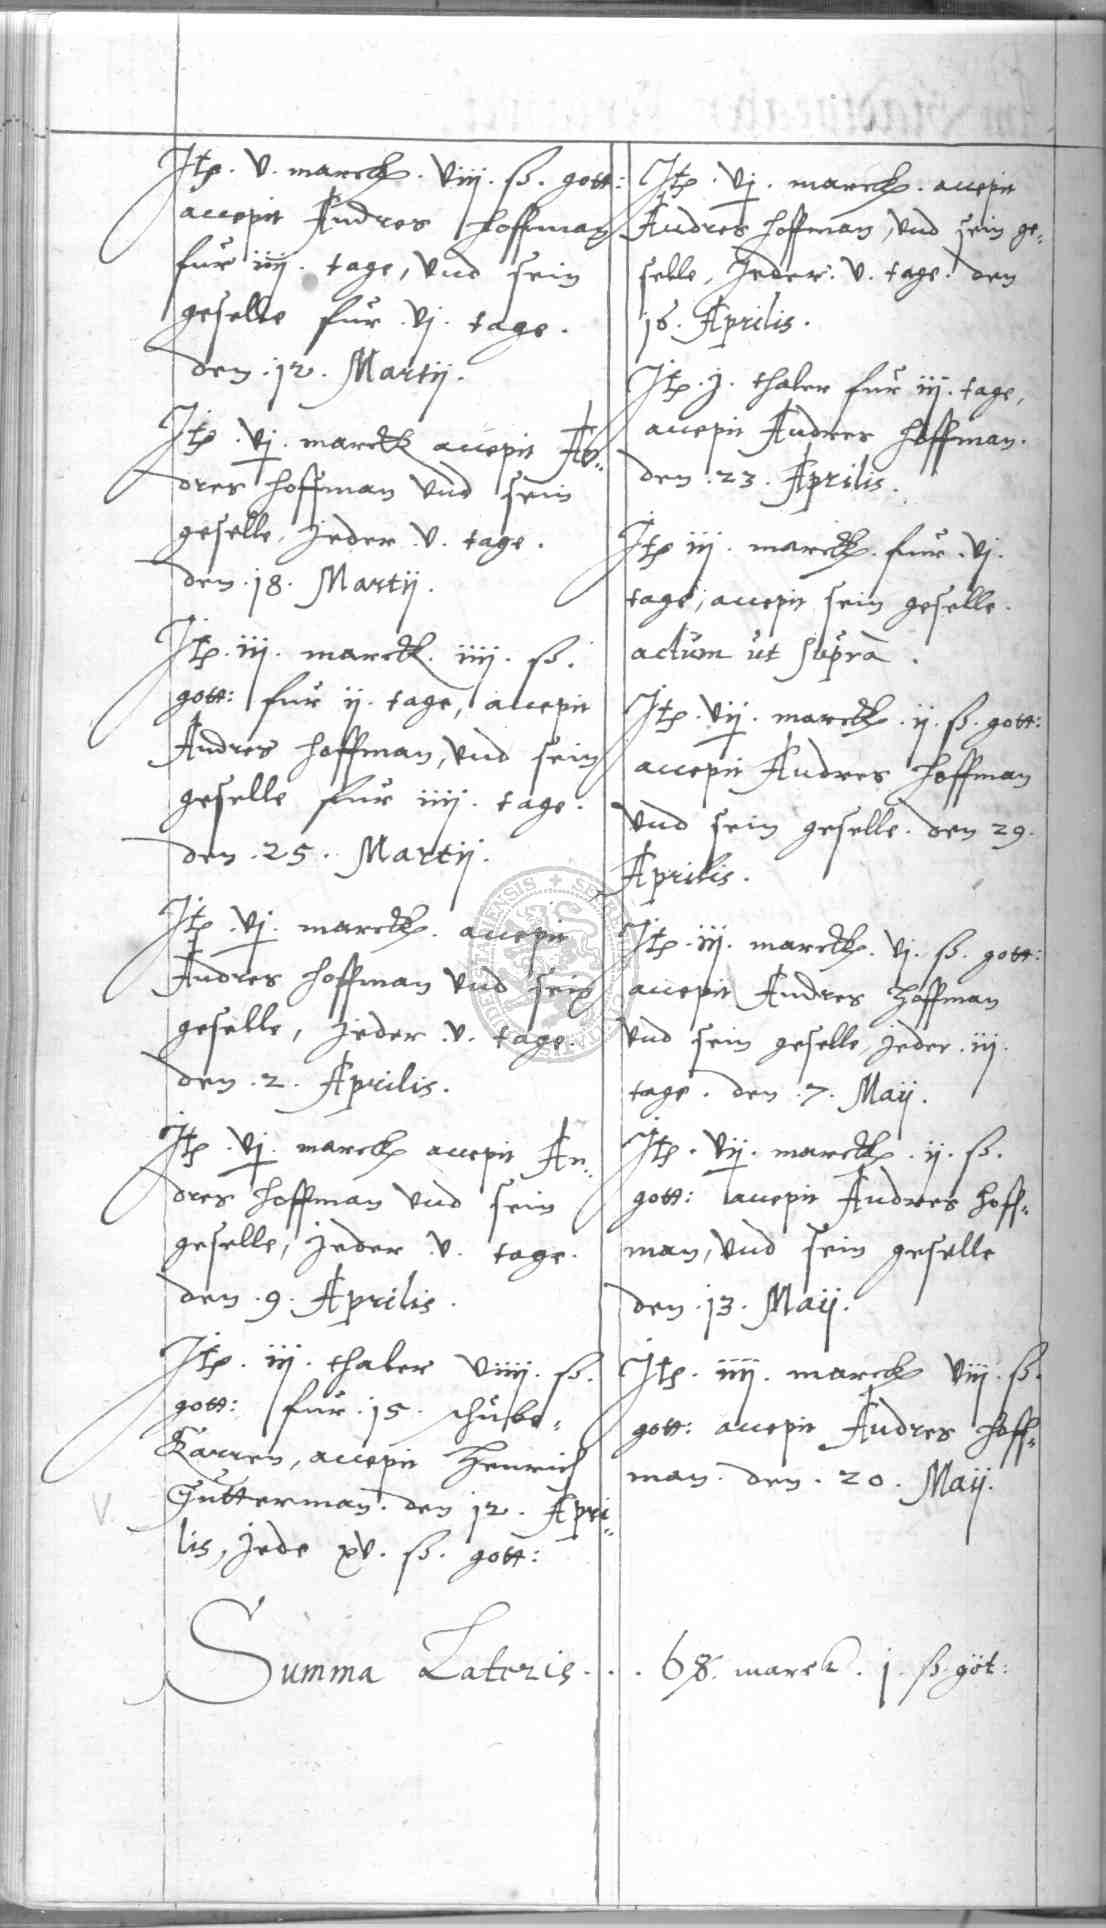 Itꝫ. v. marck. viij. ß. gott:
accepit Andres Hoffman
fur iiij. tage, vnd sein
geselle fur. vj. tage.
den. 12. Martij.
Itꝫ. vj. marck accepit An-
dres Hoffman vnd sein
geselle, jeder. v. tage.
den. 18. Martij.
Itꝫ. iij. marck. iiij. ß.
gott: fur ij. tage, accepit
Andres Hoffman, vnd sein
geselle fur iiij. tage.
den. 25. Martij.
Itꝫ. vj. marck. accepit
Andres Hoffman vnd sein
geselle, jeder. v. tage.
den. 2. Aprilis.
Itꝫ. vj. marck accepit An-
dres Hoffman vnd sein
geselle, jeder v. tage.
den. 9. Aprilis.
Itꝫ. iij. thaler viiij. ß.
gott: fur. 15. schube-
Karren, accepit Henrich
Gutterman. den 12. Apri-
lis, jede xv. ß. gott:
Itꝫ. vj. marck. accepit
Andres Hoffman, vnd sein ge-
selle, jeder. v. tage. den
16. Aprilis.
Itꝫ. j. thaler fur iij. tage,
accepit Andres Hoffman.
den. 23. Aprilis.
Itꝫ iij. marck. fur. vj.
tage, accepit sein geselle.
actum ut supra.
Itꝫ. vij. marck. ij. ß. gott:
accepit Andres Hoffman
vnd sein geselle. den 29.
Aprilis.
Itꝫ. iij. marck. vj. ß. gott:
accepit Andres Hoffman
vnd sein geselle, jeder. iij.
tage. den. 7. Maij.
Itꝫ. vij. marck. ij. ß.
gott: accepit Andres Hoff-
man, vnd sein geselle
den. 13. Maij.
Itꝫ. iiij. marck viij. ß.
gott: accepit Andres Hoff-
man. den. 20. Maij.
Summa Lateris . . . 68. marck. j. ß. göt: